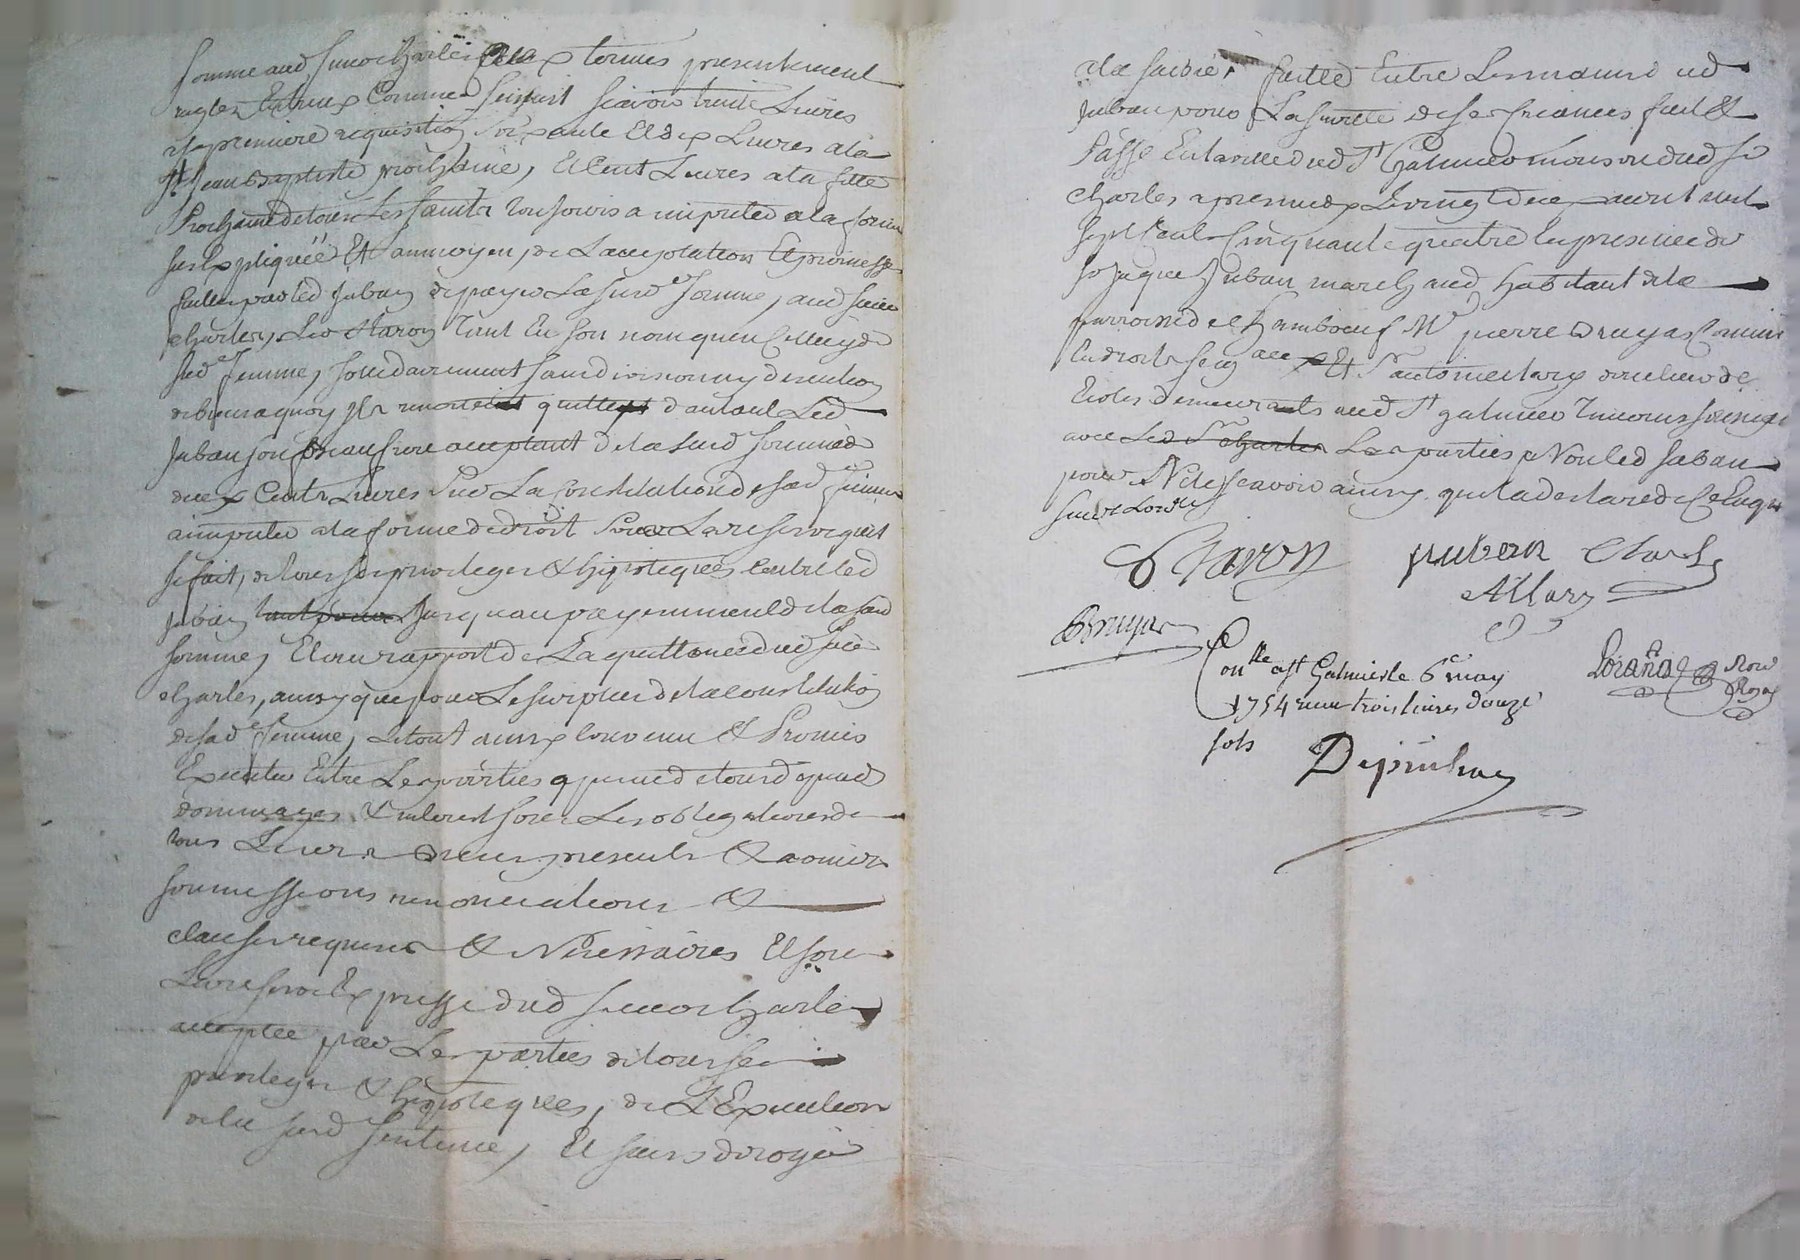 somme aud sieur charles aux termes presentement
regler entreux comme sensuit scavoir trente Livres
a premiere requisition soixante et dix Livres a la
St Jean Baptiste prochaine, et cent Livres a la fette
Prochaine de tous Les saints tousjours a imputer a la forme
susexpliquée et aumoyen de Lacceptation et promesse
faitte par led Juban de payer La susd somme, aud sieur
charles, Led Claron tant en son nom quen celluy de
sad femme, solidairement sans division ny discution
de biens a quoy ils renoncent quittent dautant Led
Juban son beaufrere acceptant de la susd somme de
deux cents Livres sur La constitution de sad femme
a imputer a la forme de droit sous La reserve quil
se fait, de tous ses privileges et hipoteques contre led
Juban jusquau payemment de la susd
somme, et au rapport de La quittance dud sieur
charles, ainsy que pour Le surplus de la constitution
de sad femme, le tout ainsy convenu et Promis
Executer Entre Les parties a peine de tous depens
dommages et interest sous Les obligations de
tous Leurs biens presents et avenir
soumissions renonciations et
clauses requises et Necessaires et sous
La reserve Expresse dud sieur charles
acceptée par Les parties de tous ses
privileges et hipoteques, de L'Execution
de la susd sentence, et sans deroger
a la saisie faitte Entre Les mains ud
Juban pour La sureté de ses creances fait et
Passé en la ville dud St Galmier maison dud sr
charles apres midy Le vingt deux avril mil
sept cent cinquante quatre en presence de
sr Jaque Juban marchand habitant de la
parroisse de chambœuf Mre pierre Bruyas
En droits et sr antoine du lieu de
demeurants aud St galmier temoins
avec Les parties Non led Juban
pour Ne le scavoir ainsy quil a declaré de ce Enquis
suivt Lordce
Claron Juban Charles
Allary
Bruyas
Conlle a St Galmier le 6e may
1754 reçu trois livres douze
sols
Notre
Royal